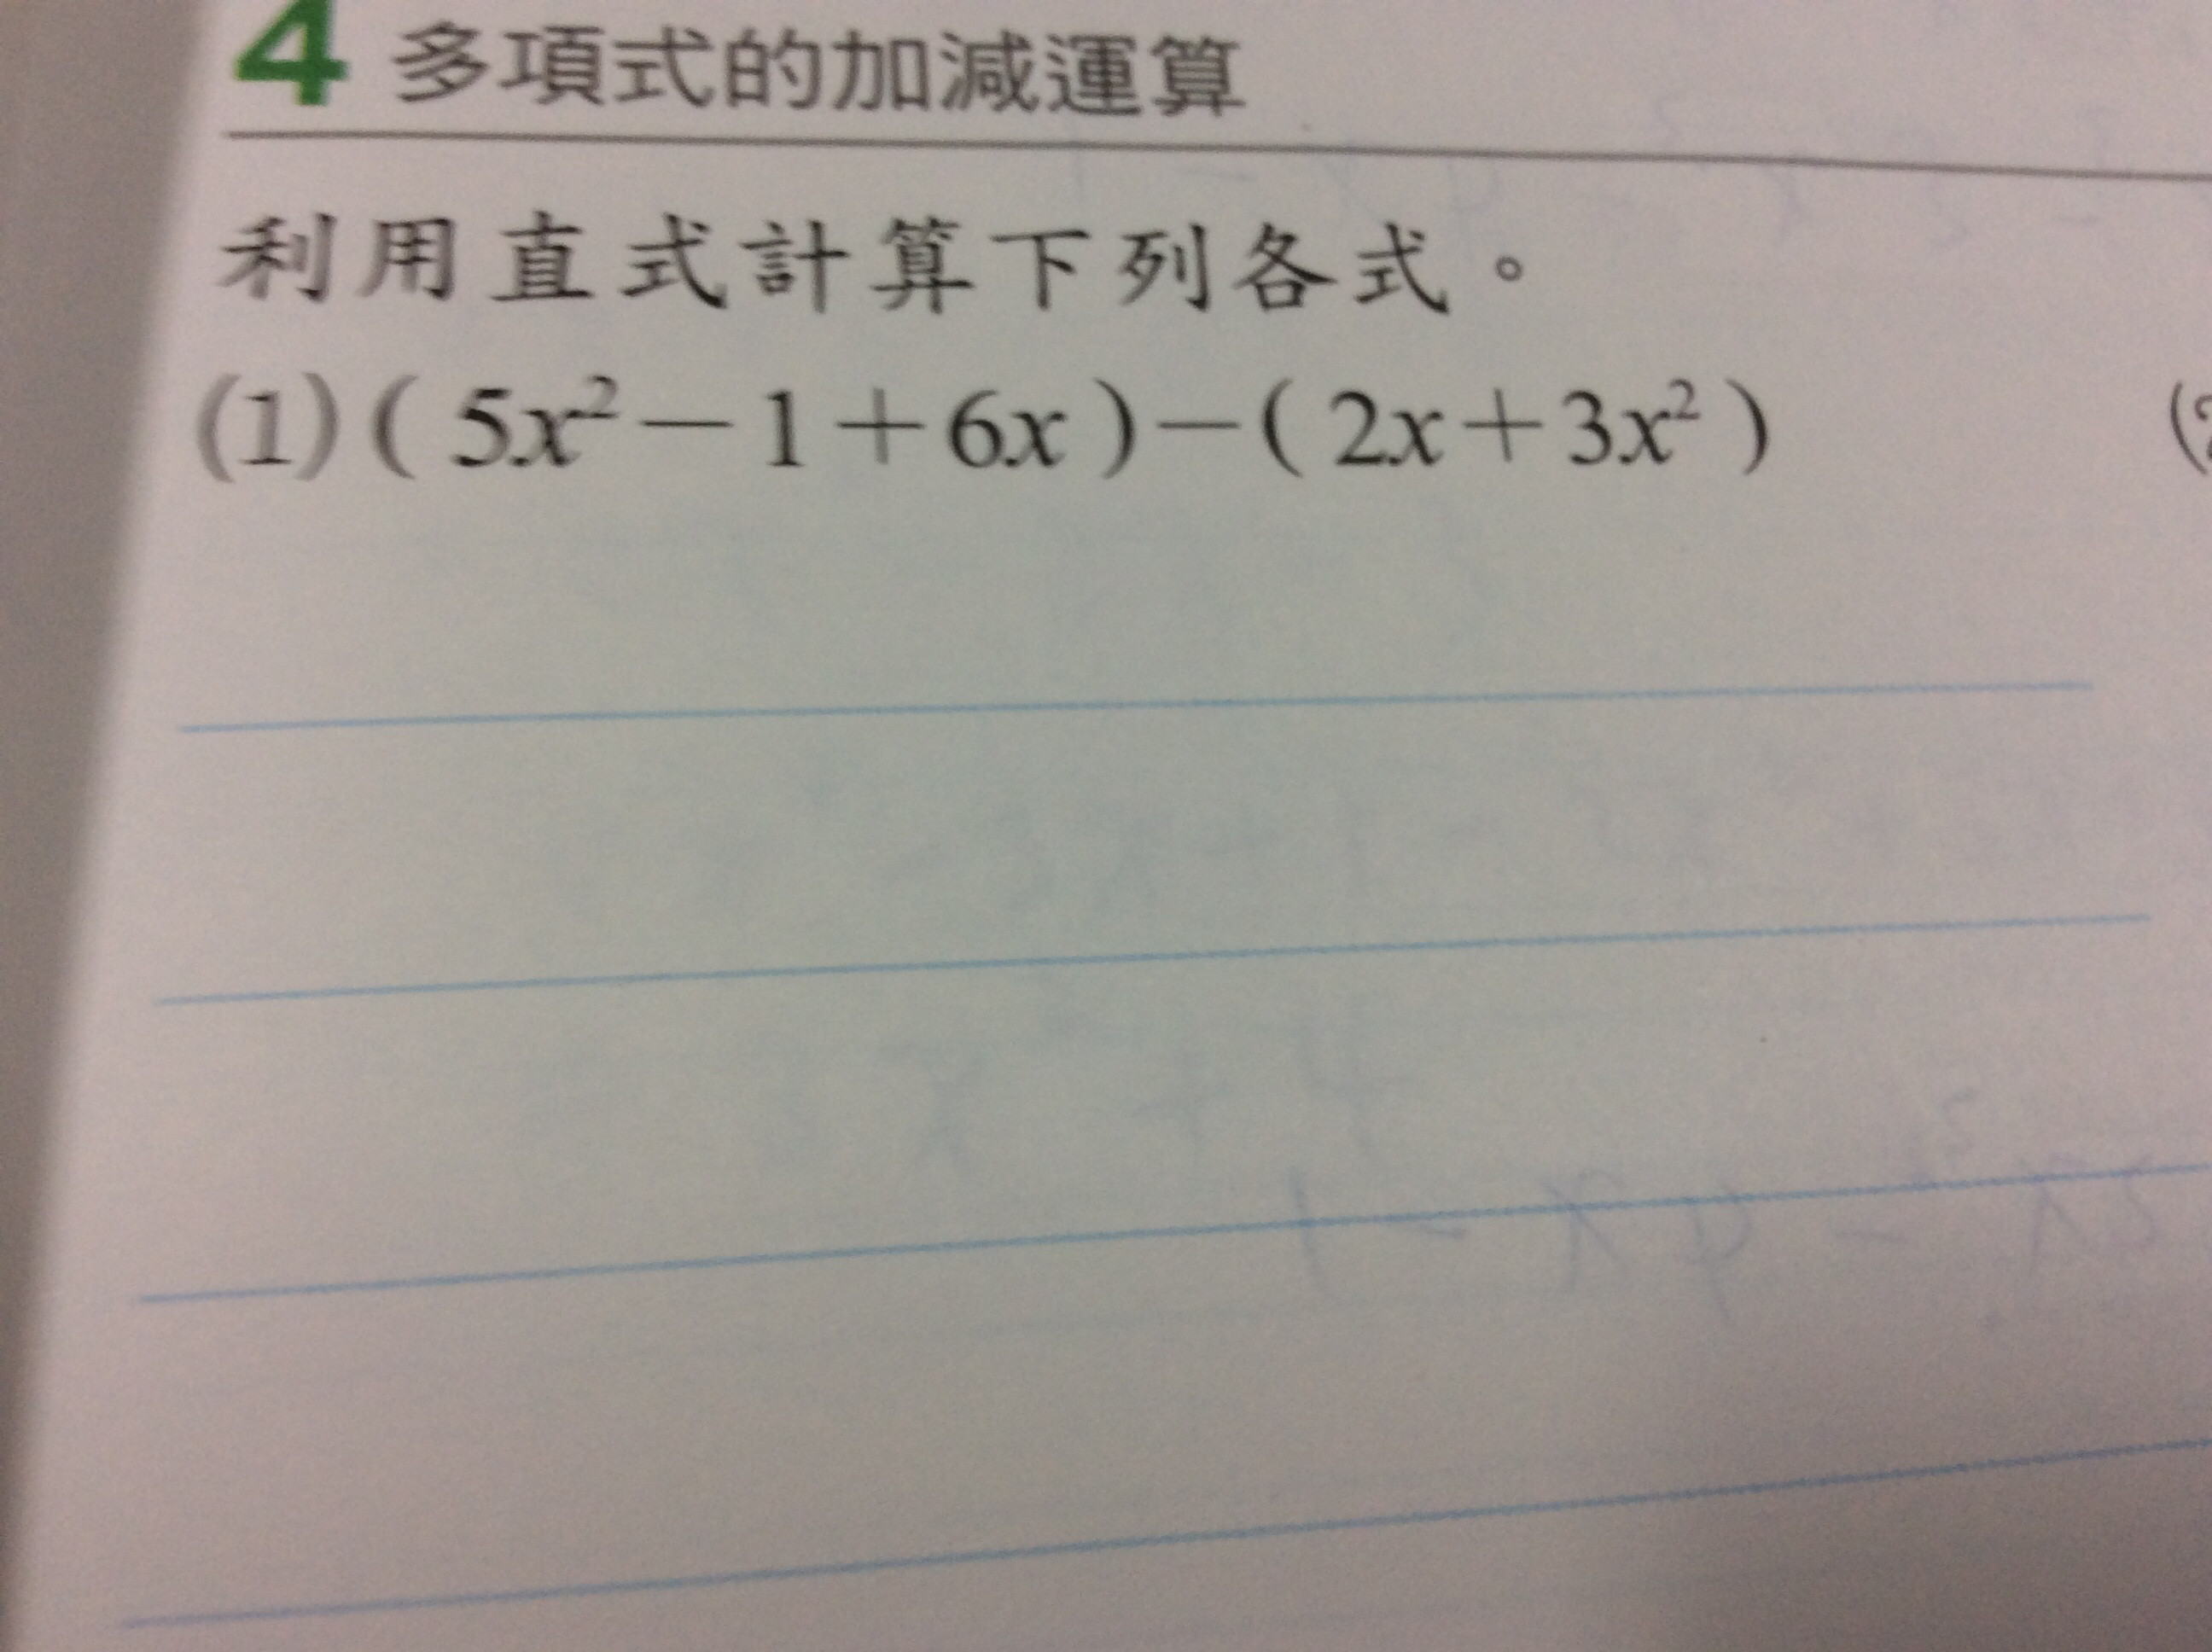 4 多項式的加減運算
利用直式計算下列各式。
(1)( 5x²－1＋6x )－( 2x＋3x² )